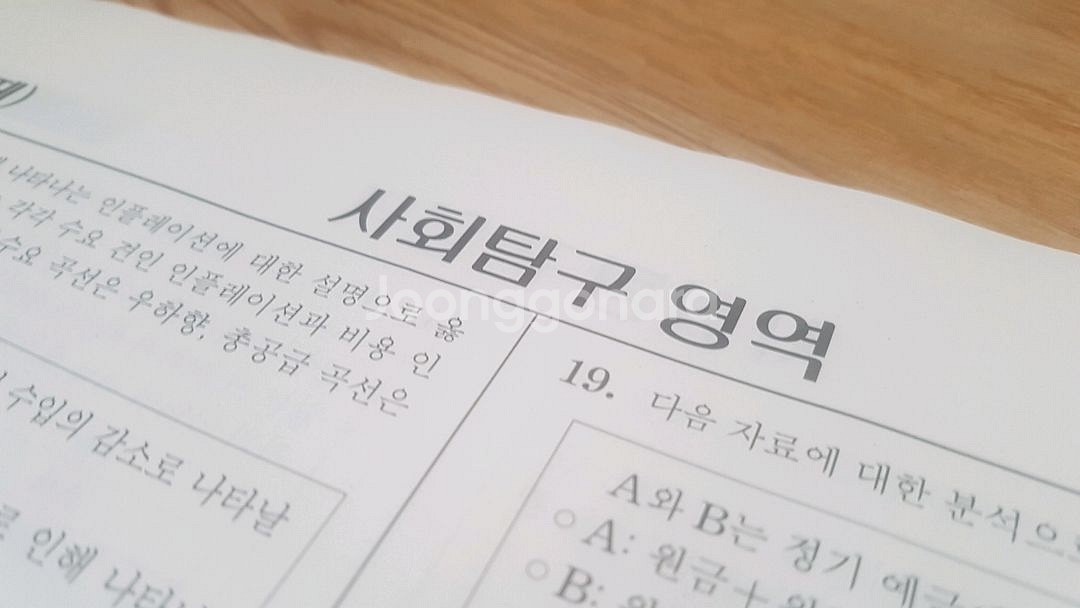 제)
사회탐구 영역
나타나는 인플레이션에 대한 설명으로 옳
각각 수요 견인 인플레이션과 비용 인
수요 곡선은 우하향, 총공급 곡선은
수입의 감소로 나타날
인해 나타
19. 다음 자료에 대한 분석으로
A와 B는 정기 예금
○ A: 원금+
○ B:
Joonggonara